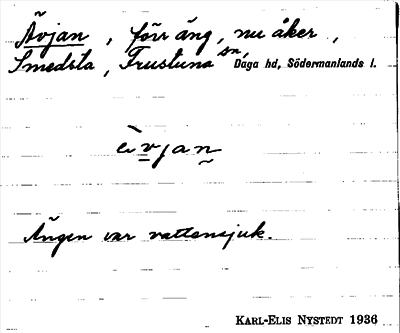 Ävjan, förr äng, nu åker,
Smedsta, Frustuna sn, Daga hd, Södermanlands l.
ä̀vjan
Ängen var vattensjuk.
KARL-ELIS NYSTEDT 1936